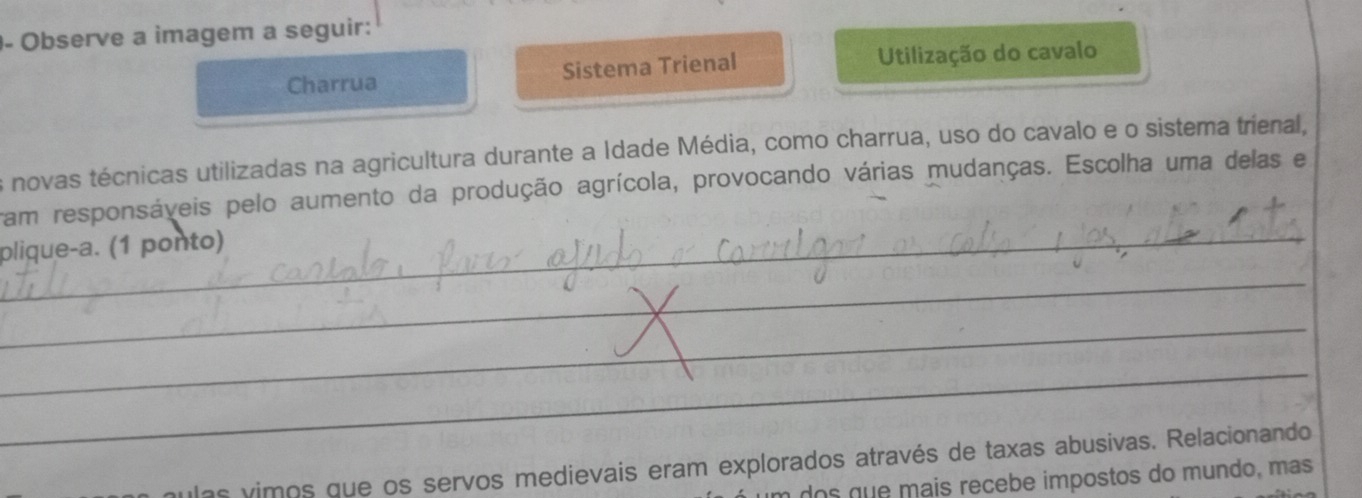 - Observe a imagem a seguir:
Charrua
Sistema Trienal
Utilização do cavalo
s novas técnicas utilizadas na agricultura durante a Idade Média, como charrua, uso do cavalo e o sistema trienal,
ram responsáveis pelo aumento da produção agrícola, provocando várias mudanças. Escolha uma delas e
plique-a. (1 ponto)
do cavalo, ajudo a
alimentos
aulas vimos que os servos medievais eram explorados através de taxas abusivas. Relacionando
é um dos que mais recebe impostos do mundo, mas